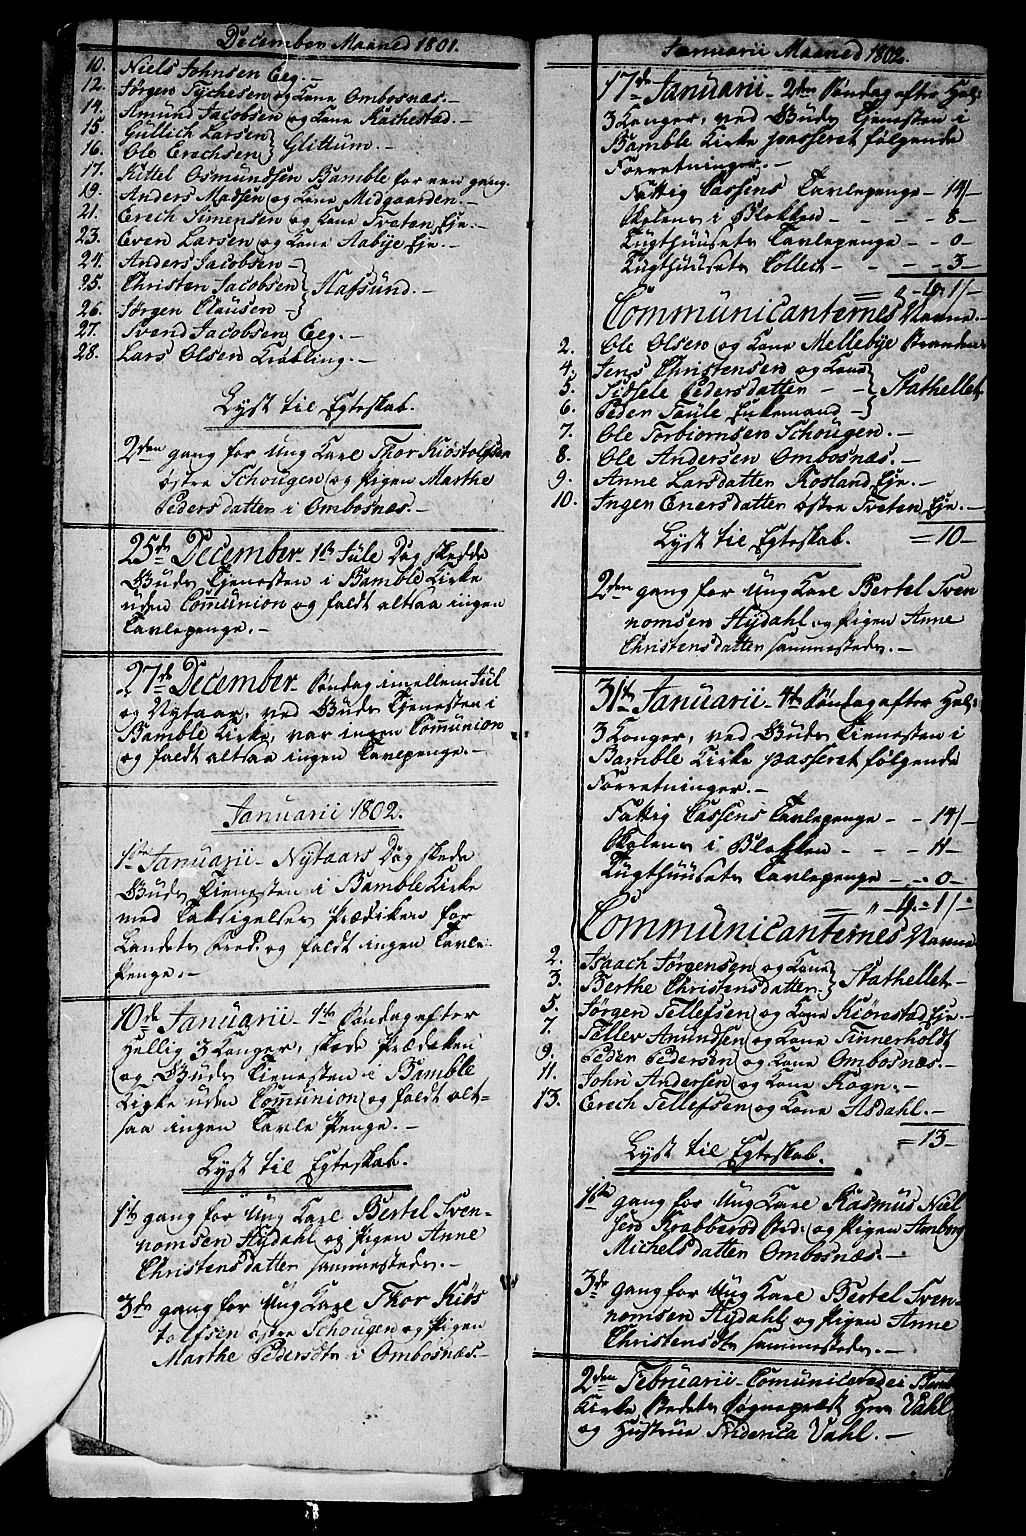 December Maaned 1801.
10. Niels Johnsen Eeg.-
12. Jørgen Tychesen og Kone Ombosnæs.-
14. Amund Jacobsen og Kone Rachestad.-
15. Gullich Larsen
16. Ole Erechsen } Glittum.-
17. Kittel Osmundsen Bamble for een gang.
19. Anders Madsen og Kone Midgaarden.-
21. Erech Simensen og Kone Tveten Eje.-
23. Even Larsen og Kone Aabye Eje.-
24. Anders Jacobsen-
25. Christen Jacobsen } Hafsund.-
26. Jørgen Clausen
27. Svend Jacobsen Eeg.-
28. Lars Olsen Krøbling.-
Lyst til Egteskab.
2den gang for Ung Karl Thor Kiøstolfsen
østre Schougen og Pigen Marthe
Pedersdatter i Ombosnæs.-
25de December. 1te Jule Dag skedde
Guds Tjenesten i Bamble Kirke
uden Comunion og faldt altsaa ingen
Tavlepenge.-
27de December. Søndag imellem Juul
og Nytaar, ved Guds Tjenesten i
Bamble Kirke, var ingen Comunion
og faldt altsaa ingen Tavlepenge.-
Januarii 1802.
1te Januarii- Nytaars Dag skede
Guds Tienesten i Bamble Kirke
med Taksigelses Prædiken for
Landets Fred. og faldt ingen Tavle-
Penge.-
10de Januarii- 1te Søndag efter
Hellig 3 Konger, skede Prædiken
og Guds Tienesten i Bamble
Kirke uden Comunion og faldt alt-
saa ingen Tavle Penge.-
Lyst til Egteskab.
1te gang for Ung Karl Bertel Sven-
nomsen Hydahl og Pigen Anne
Christensdatter sammesteds.-
3de gang for Ung Karl Thor Kiøs
tolfsen østre Schougen og Pigen
Marthe Pedersdtr i Ombosnæs.-
Januarii Maaned 1802.
17de Januarii- 2den Søndag efter Hel:
3 Konger, ved Guds Tjenesten i
Bamble Kirke passeret følgende
Forretninger.-
Fattig Cassens Tavlepenge - 14/-
Skolens i Blokken - - - - 8-
Tugthuusets Tavlepenge - - 0-
Tugthuusets Collect - - - - 3-
= „ - 1/-
Communicanternes Navne.-
2. Ole Olsen og Kone Mellebye Brandne
4. Jens Christensen og Kone
5. Sidsele Pedersdatter - - } Stathellet
6. Peder Juule Enkemand-
7. Ole Torbiornsen Schougen.-
8. Ole Andersen Ombosnæs.-
9. Anne Larsdatter Rosland Eje.-
10. Inger Enersdatter østre Tveten Eje.-
=10-
Lyst til Egteskab.
2den gang for Ung Karl Bertel Sven
nomsen Hydahl og Pigen Anne
Christensdatter sammesteds.-
31te Januarii- 4de Søndag efter Hel:
3 Konger, ved Guds Tienesten i
Bamble Kirke passeret følgende
Forretninger.-
Fattig Cassens Tavlepenge - - 14/-
Skolens i Blokken - - - 11-
Tugthuusets Tavlepenge - - 0-
= „ - 1/-
Communicanternes Navne
2. Isaach Jørgensen og Kone
3. Berthe Christensdatter } Stathellet-
5. Jørgen Tellefsen og Kone Kiønstad Eje.-
7. Tellev Amundsen og Kone Tinnerholdt
9. Peder Pedersen og Kone Ombosnæs.-
11. John Andersen og Kone Rogn.-
13. Erech Tellefsen og Kone Asdahl.-
=13-
Lyst til Egteskab.
1te gang for Ung Karl Rasmus Niel
sen Krabberød Sted. og Pigen Amborg
Michelsdatter Ombosnæs.-
3de gang for Ung Karl Bertel Sven-
nomsen Hydahl og Pigen Anne
Christensdtr sammesteds.-
2den Februarii- Comunicerede i Bamb
Kirke Stedets Sognepræst Herr Vahl
og Hustrue Friderica Vahl.-